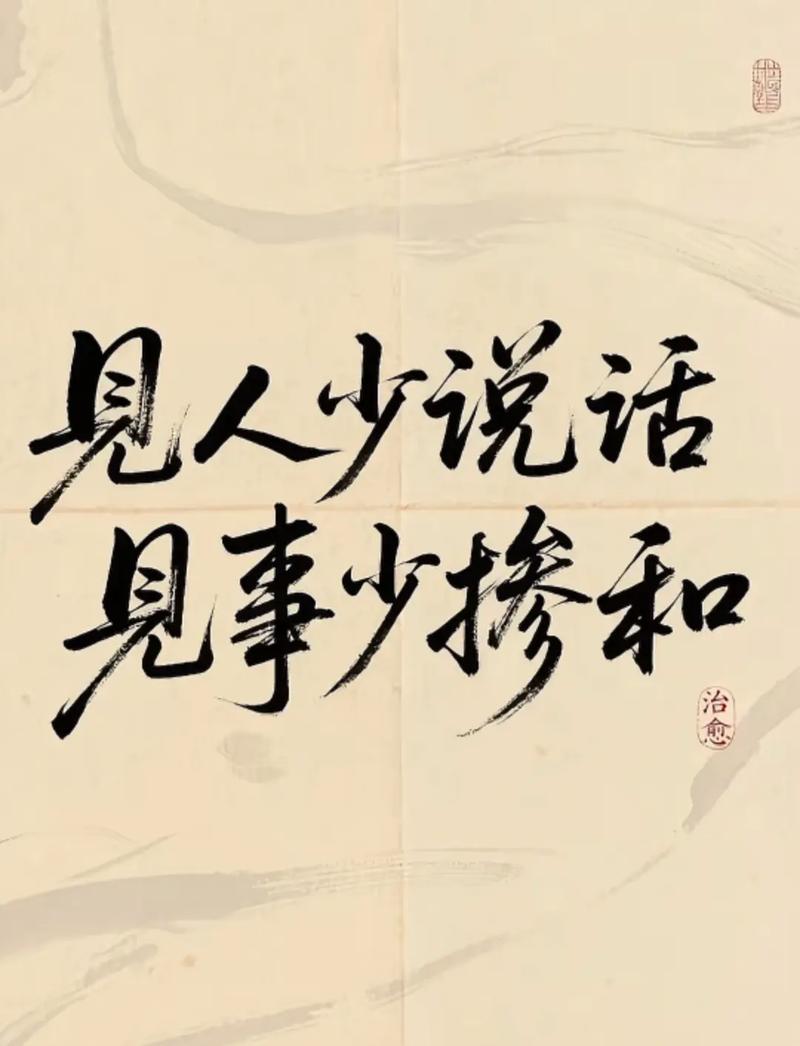 見人少说话
見事少掺和
治愈